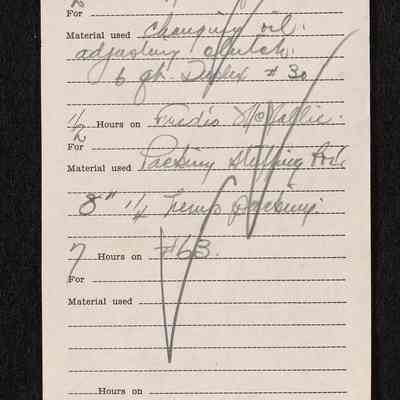 For
Material used changing oil.
adjusting clutch.
6 qt. Duplex # 30
1/2 Hours on Fredio McVallie.
For
Material used Packing Stuffing Box.
8" 1/4 hemp packing.
7 Hours on #63.
For
Material used
Hours on